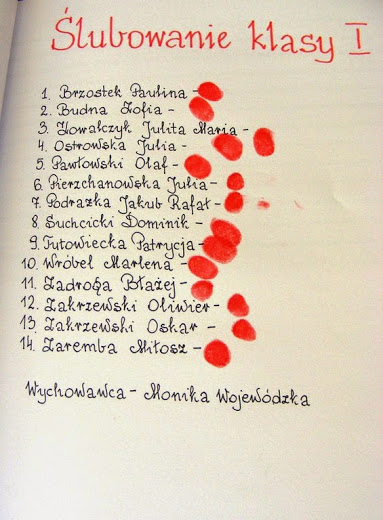 Ślubowanie klasy I
1. Brzostek Paulina -
2. Budna Zofia -
3. Kowalczyk Julita Maria -
4. Ostrowska Julia -
5. Pawłowski Olaf -
6. Pierzchanowska Julia -
7. Podrażka Jakub Rafał -
8. Suchcicki Dominik -
9. Tutowiecka Patrycja -
10. Wróbel Marlena -
11. Zadroga Błażej -
12. Zakrzewski Oliwier -
13. Zakrzewski Oskar -
14. Zaremba Miłosz -
Wychowawca - Monika Wojewódzka